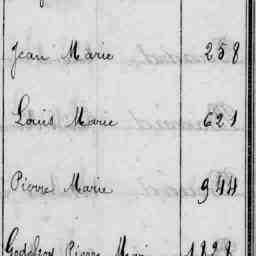 Jean Marie 258
Louis Marie 621
Pierre Marie 944
Godefroy Pierre Marie 1828